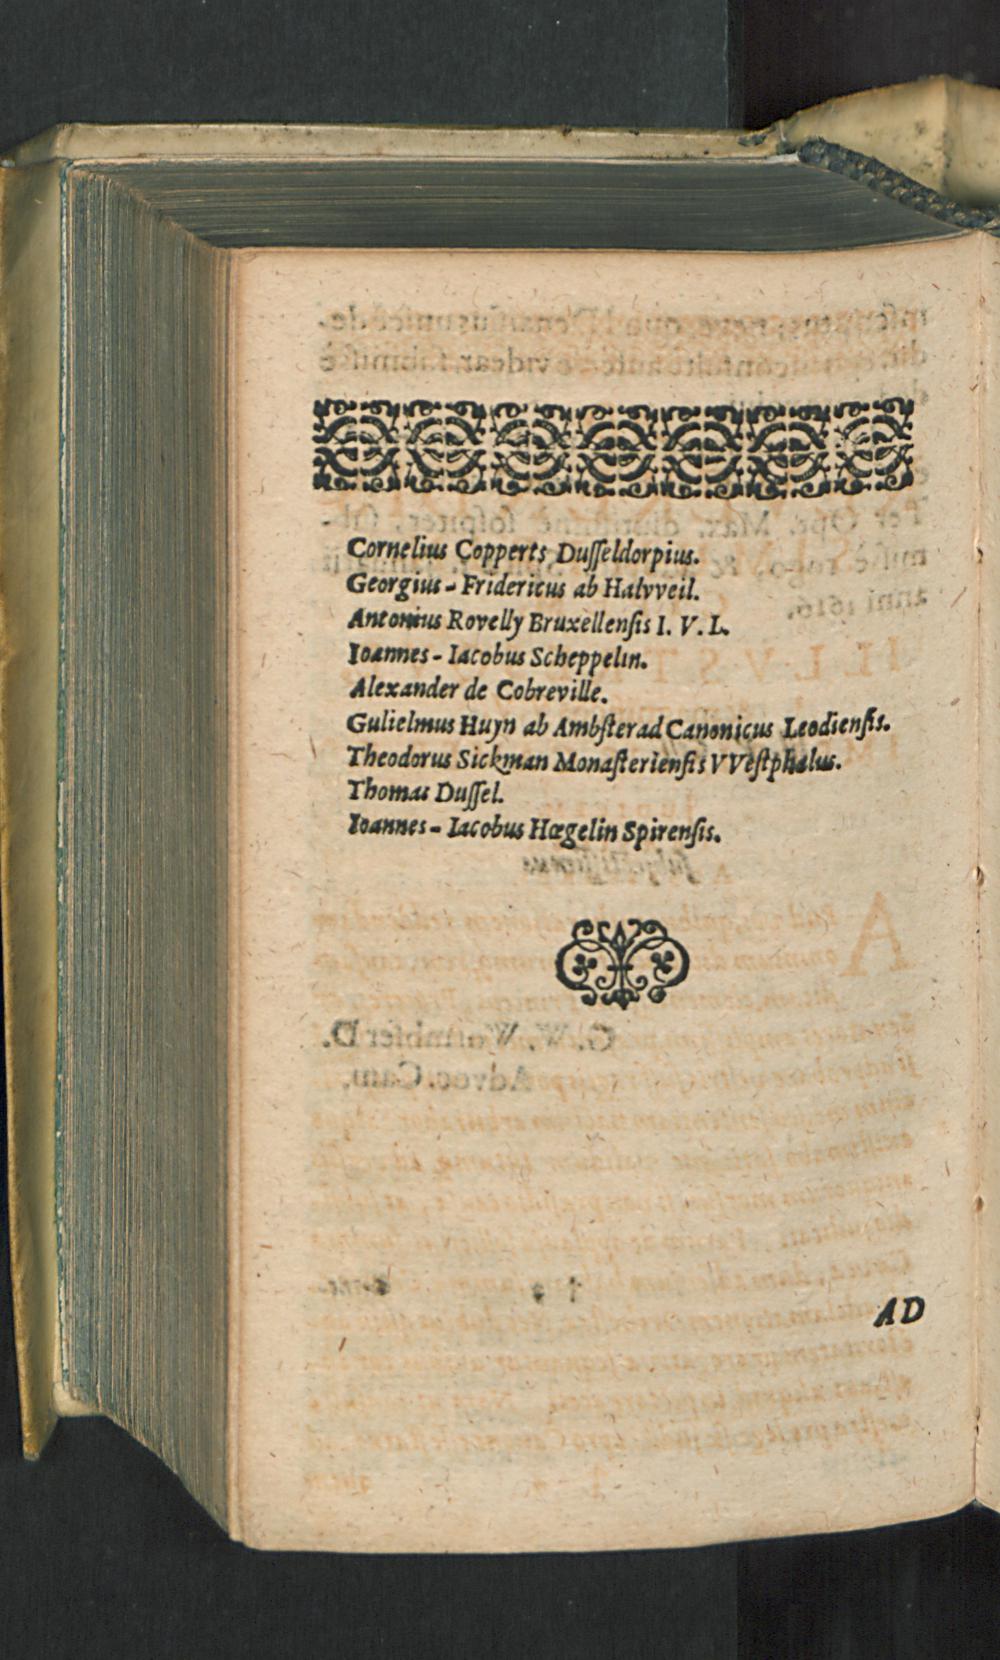 Cornelius Copperts Dusseldorpius.
Georgius-Fridericus ab Halvveil.
Antonius Rovelly Bruxellensis I. V. L.
Ioannes-Iacobus Scheppelin.
Alexander de Cobreville.
Gulielmus Huyn ab Ambsterad Canonicus Leodiensis.
Theodorus Sickman Monasteriensis VVestphalus.
Thomas Dussel.
Ioannes-Iacobus Hœgelin Spirensis.
AD